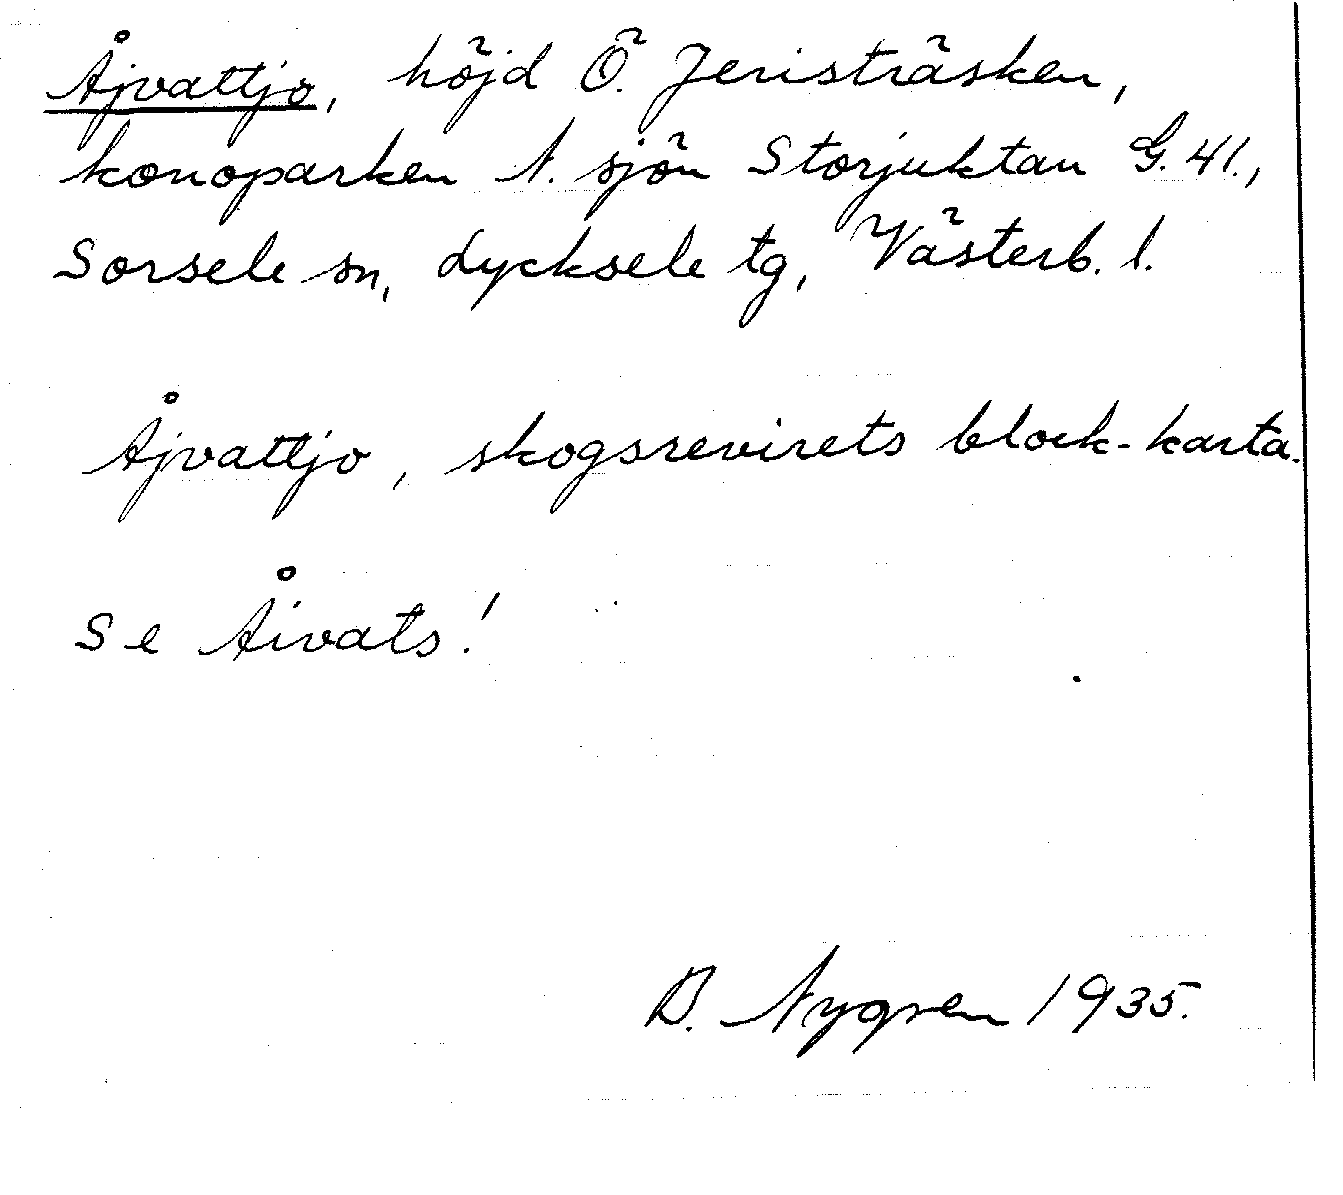 Åjvattjo, höjd Ö. Jeristräsken,
kronoparken N. sjön Storjuktan G. 41.,
Sorsele sn, Lycksele tg, Västerb. l.
Åjvattjo, skogsrevirets block-karta.
Se Åivats!
B. Nygren 1935.